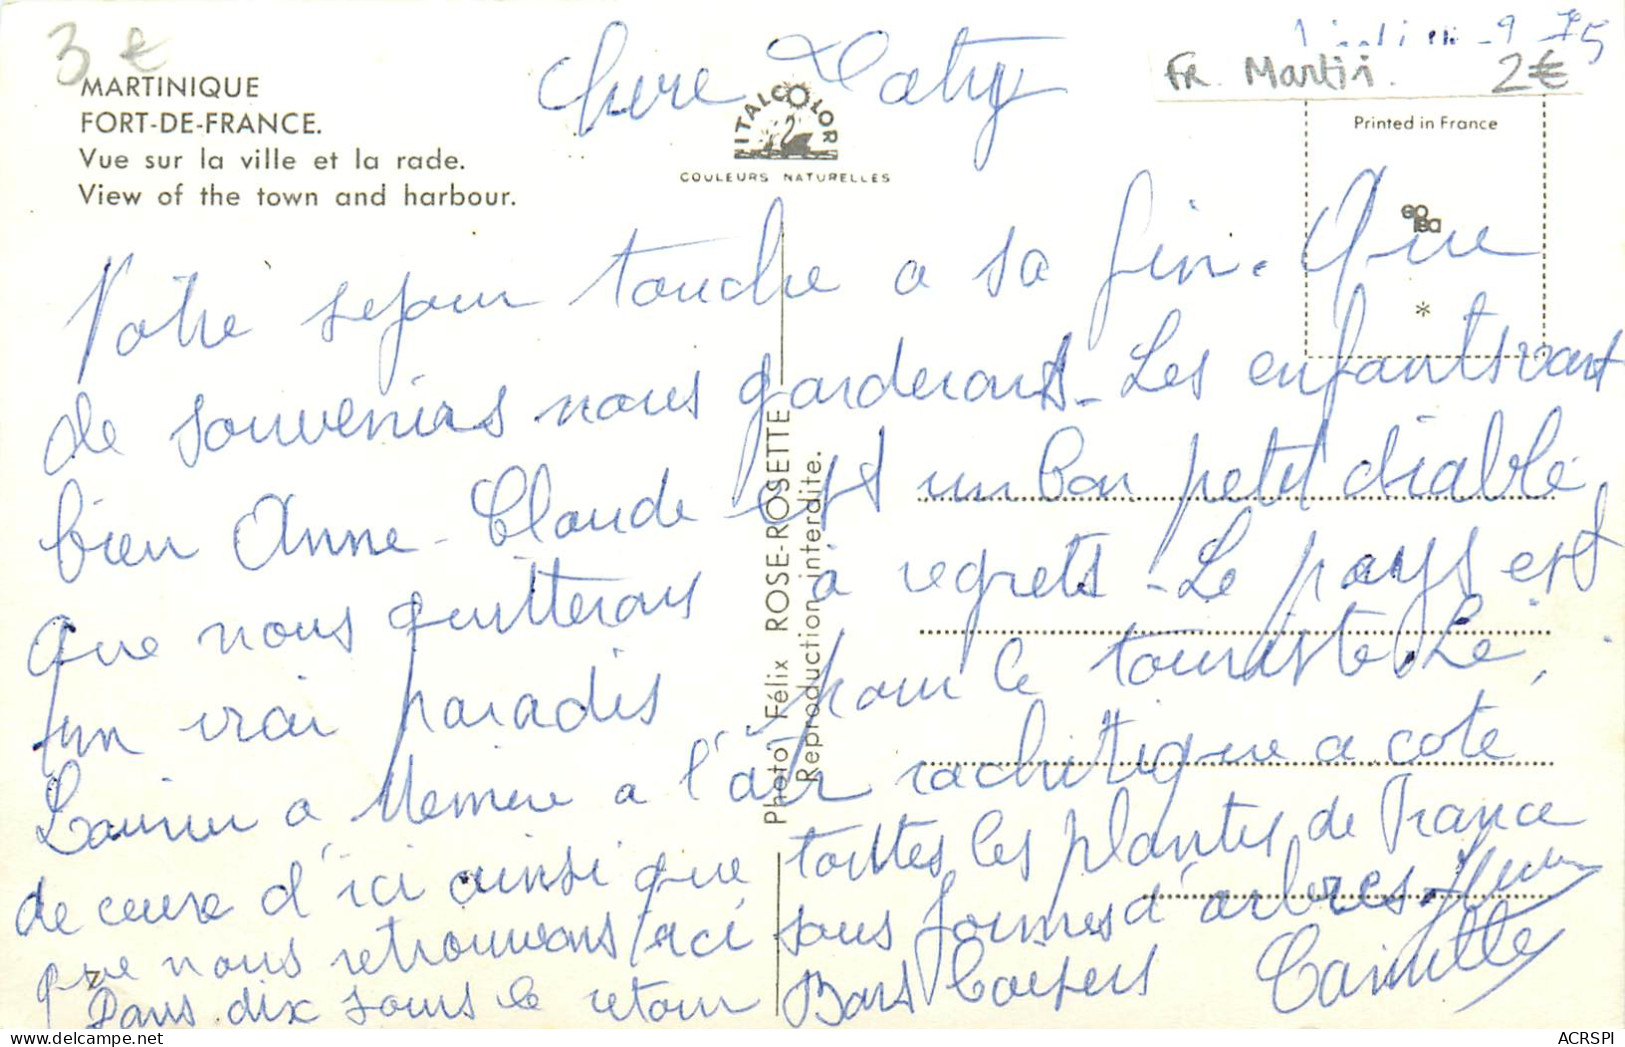 3 €
MARTINIQUE
FORT-DE-FRANCE.
Vue sur la ville et la rade.
View of the town and harbour.
Chere Caty
ITALCOLOR
COULEURS NATURELLES
9 75
FR. Martin. 2€
Printed in France
*
Votre sejour touche a sa fin. Que
de souvenirs nous garderons - Les enfants vont
bien Anne-Claude est un bon petit diable
que nous quitterons à regrets - Le pays est
un vrai paradis pour le touriste. Le
Laurier a Memere a l'air rachitique a coté
de ceux d'ici ainsi que toutes les plantes de France
que nous retrouvons ici sous formes d'arbres.
Dans dix jours le retour Bons Baisers
Photo Félix ROSE-ROSETTE
Reproduction interdite.
ACRSPI